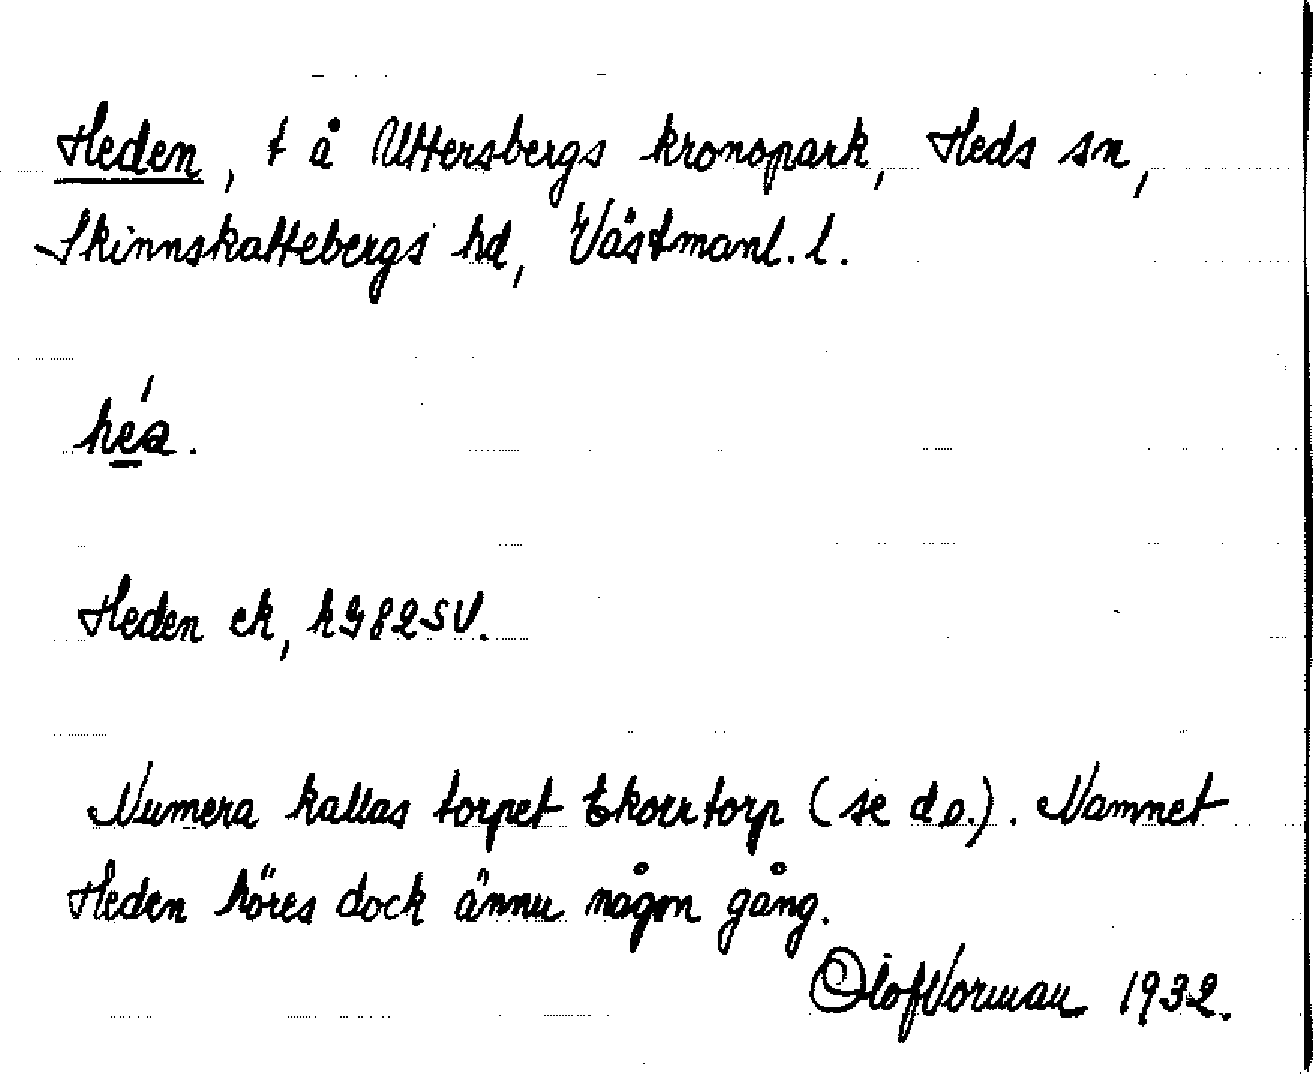 Heden, t å Uttersbergs kronopark, Heds sn,
Skinnskattebergs hd, Västmanl. l.
héa.
Heden ek, hG82SV.
Numera kallas torpet Ekorrtorp (se d.o.). Namnet
Heden höres dock ännu någon gång.
Olof Norman 1932.